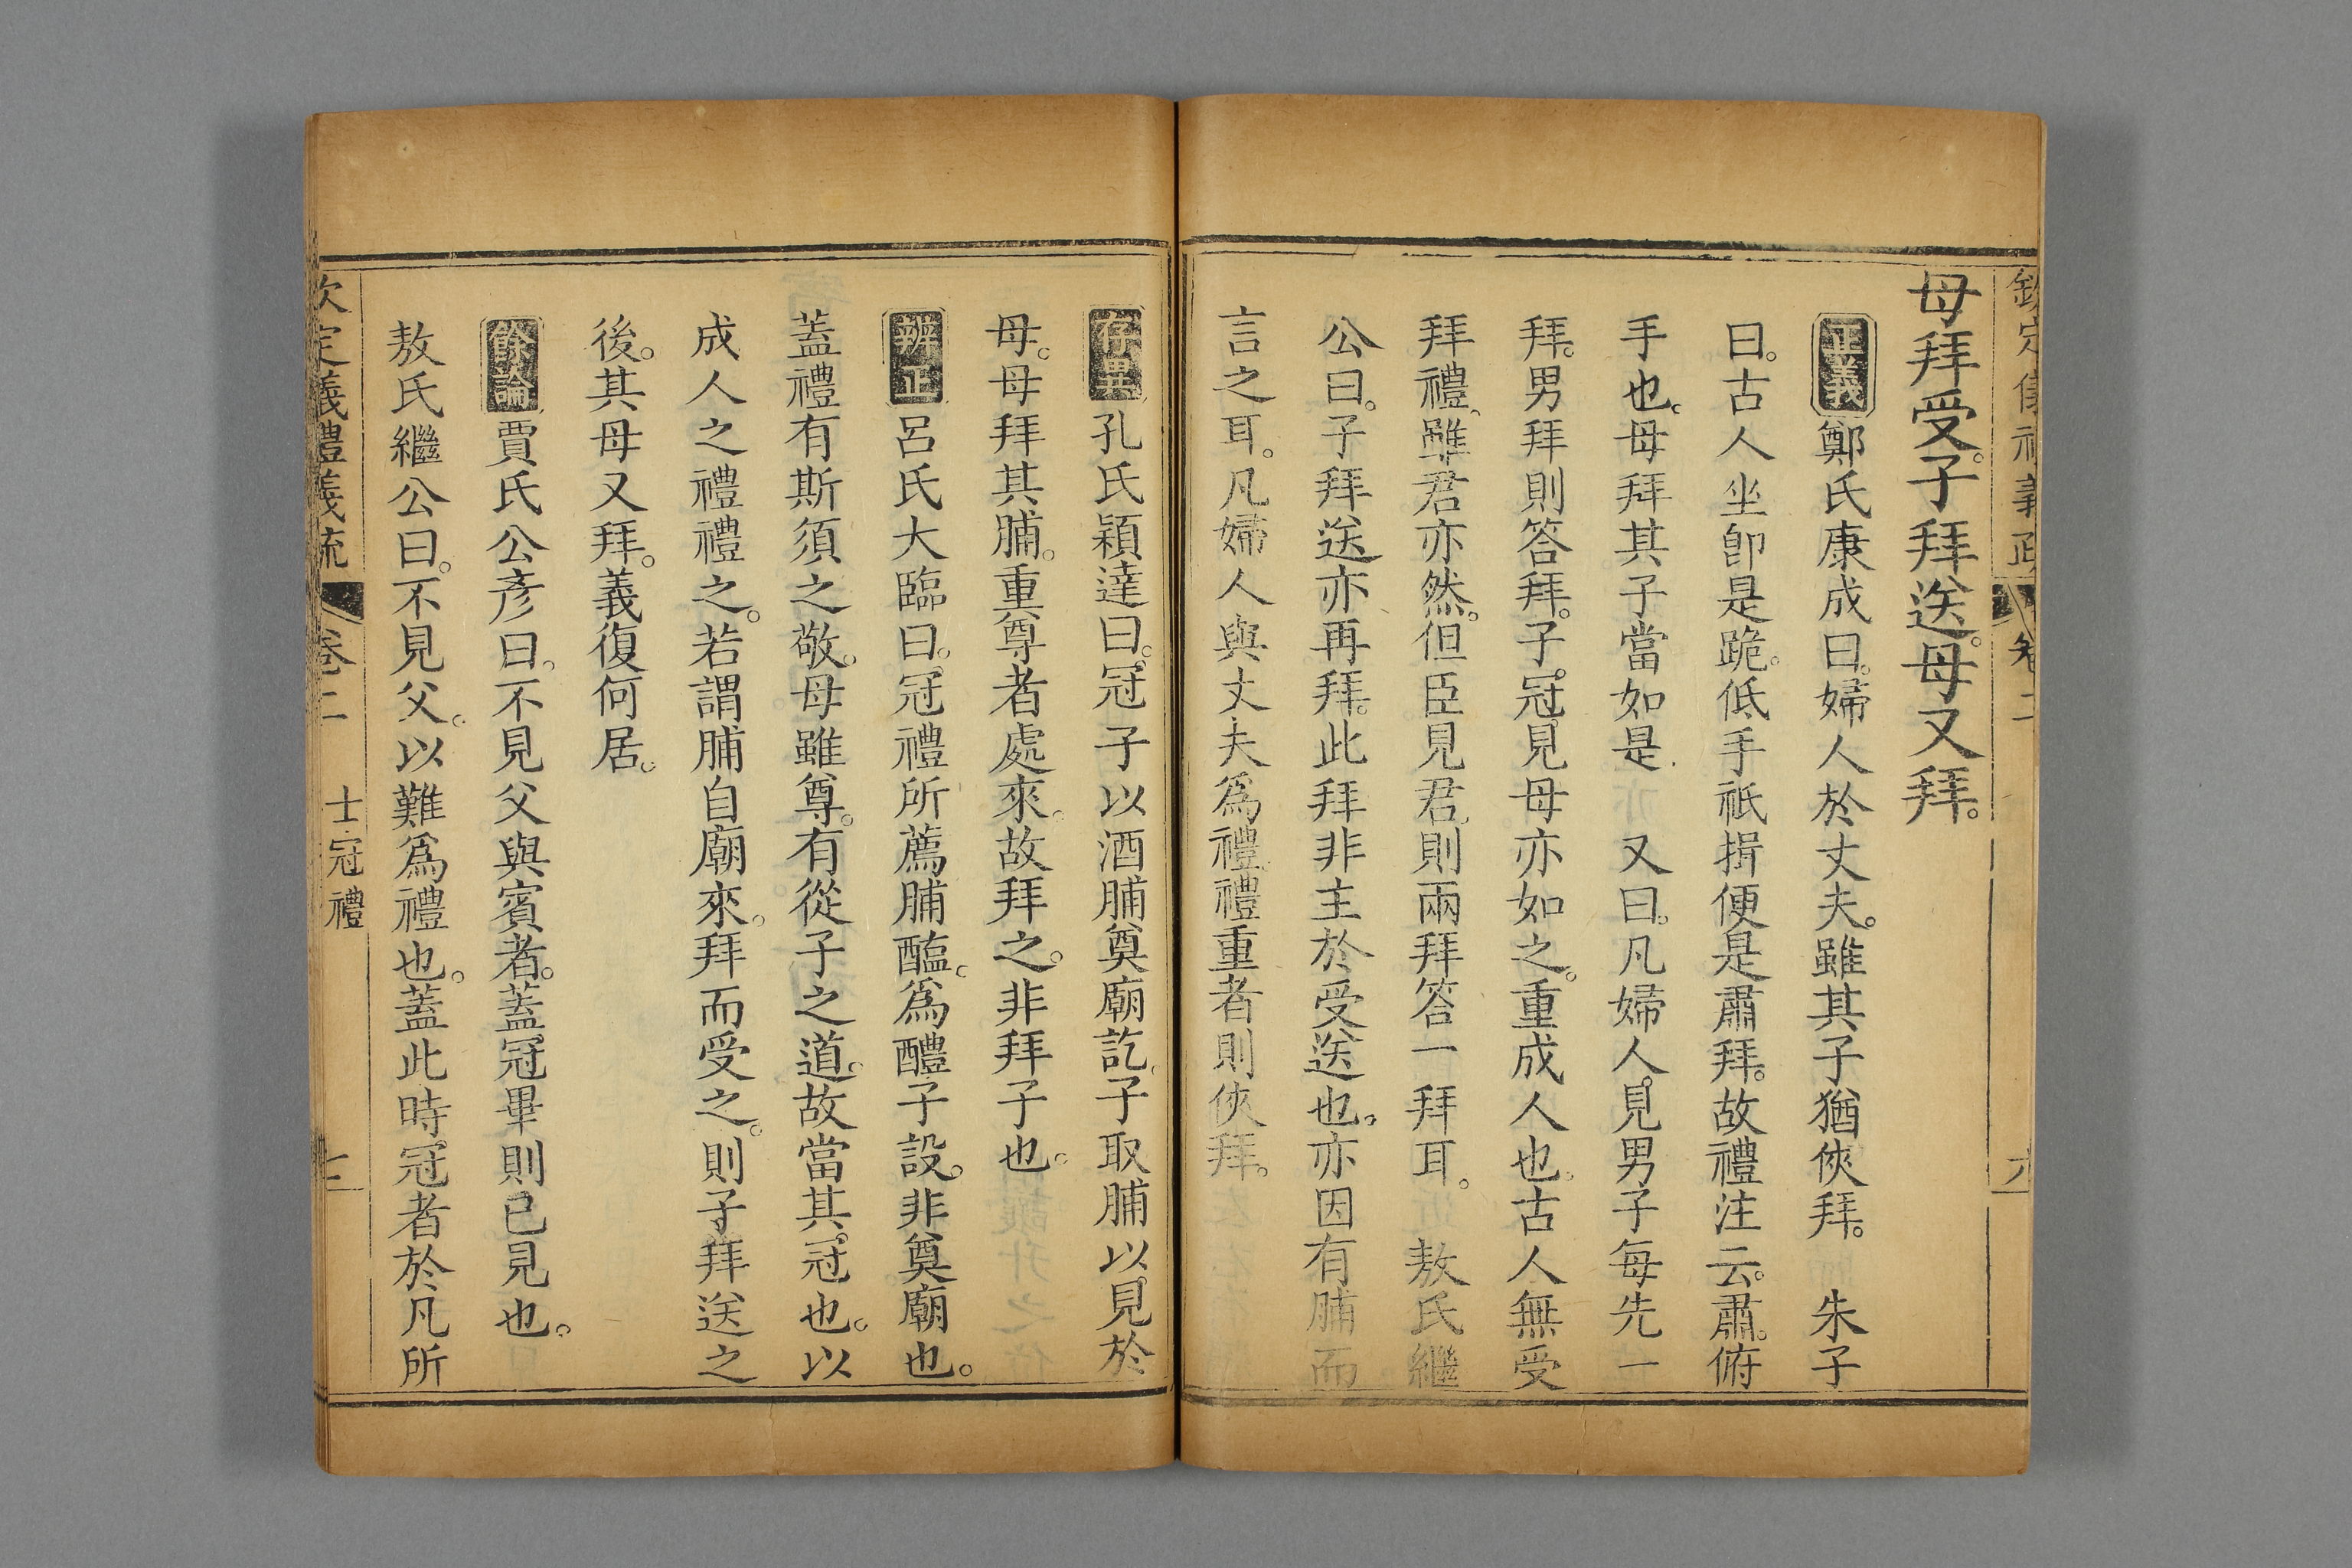 母拜受。子拜送。母又拜。
正義鄭氏康成曰。婦人於丈夫。雖其子猶俠拜。朱子
曰。古人坐卽是跪。低手祇揖便是肅拜。故禮注云。肅。俯
手也。母拜其子當如是 又曰。凡婦人。見男子每先一
拜。男拜則答拜。子。冠。見母亦如之。重成人也。古人無受
拜禮。雖君亦然。但臣見君。則兩拜答一拜耳。敖氏繼
公曰。子拜送亦再拜。此拜非主於受送也。亦因有脯而
言之耳。凡婦人與丈夫爲禮。禮重者則俠拜。
存異孔氏穎達曰。冠子以酒脯奠廟訖。子取脯以。見於
母。母拜其脯。重尊者處來。故拜之。非拜子也。
辨正呂氏大臨曰。冠禮所薦脯醢。爲醴子設。非奠廟也。
蓋禮有斯須之敬。母雖尊。有從子之道。故當其。冠也。以
成人之禮禮之。若謂脯自廟來。拜而受之。則子拜送之
後。其母又拜。義復何居。
餘論賈氏公彥曰。不見父與賓者。蓋冠畢則已見也。
敖氏繼公曰。不見父。以難爲禮也。蓋此時冠者於凡所
欽定義禮義疏 卷二 士冠禮